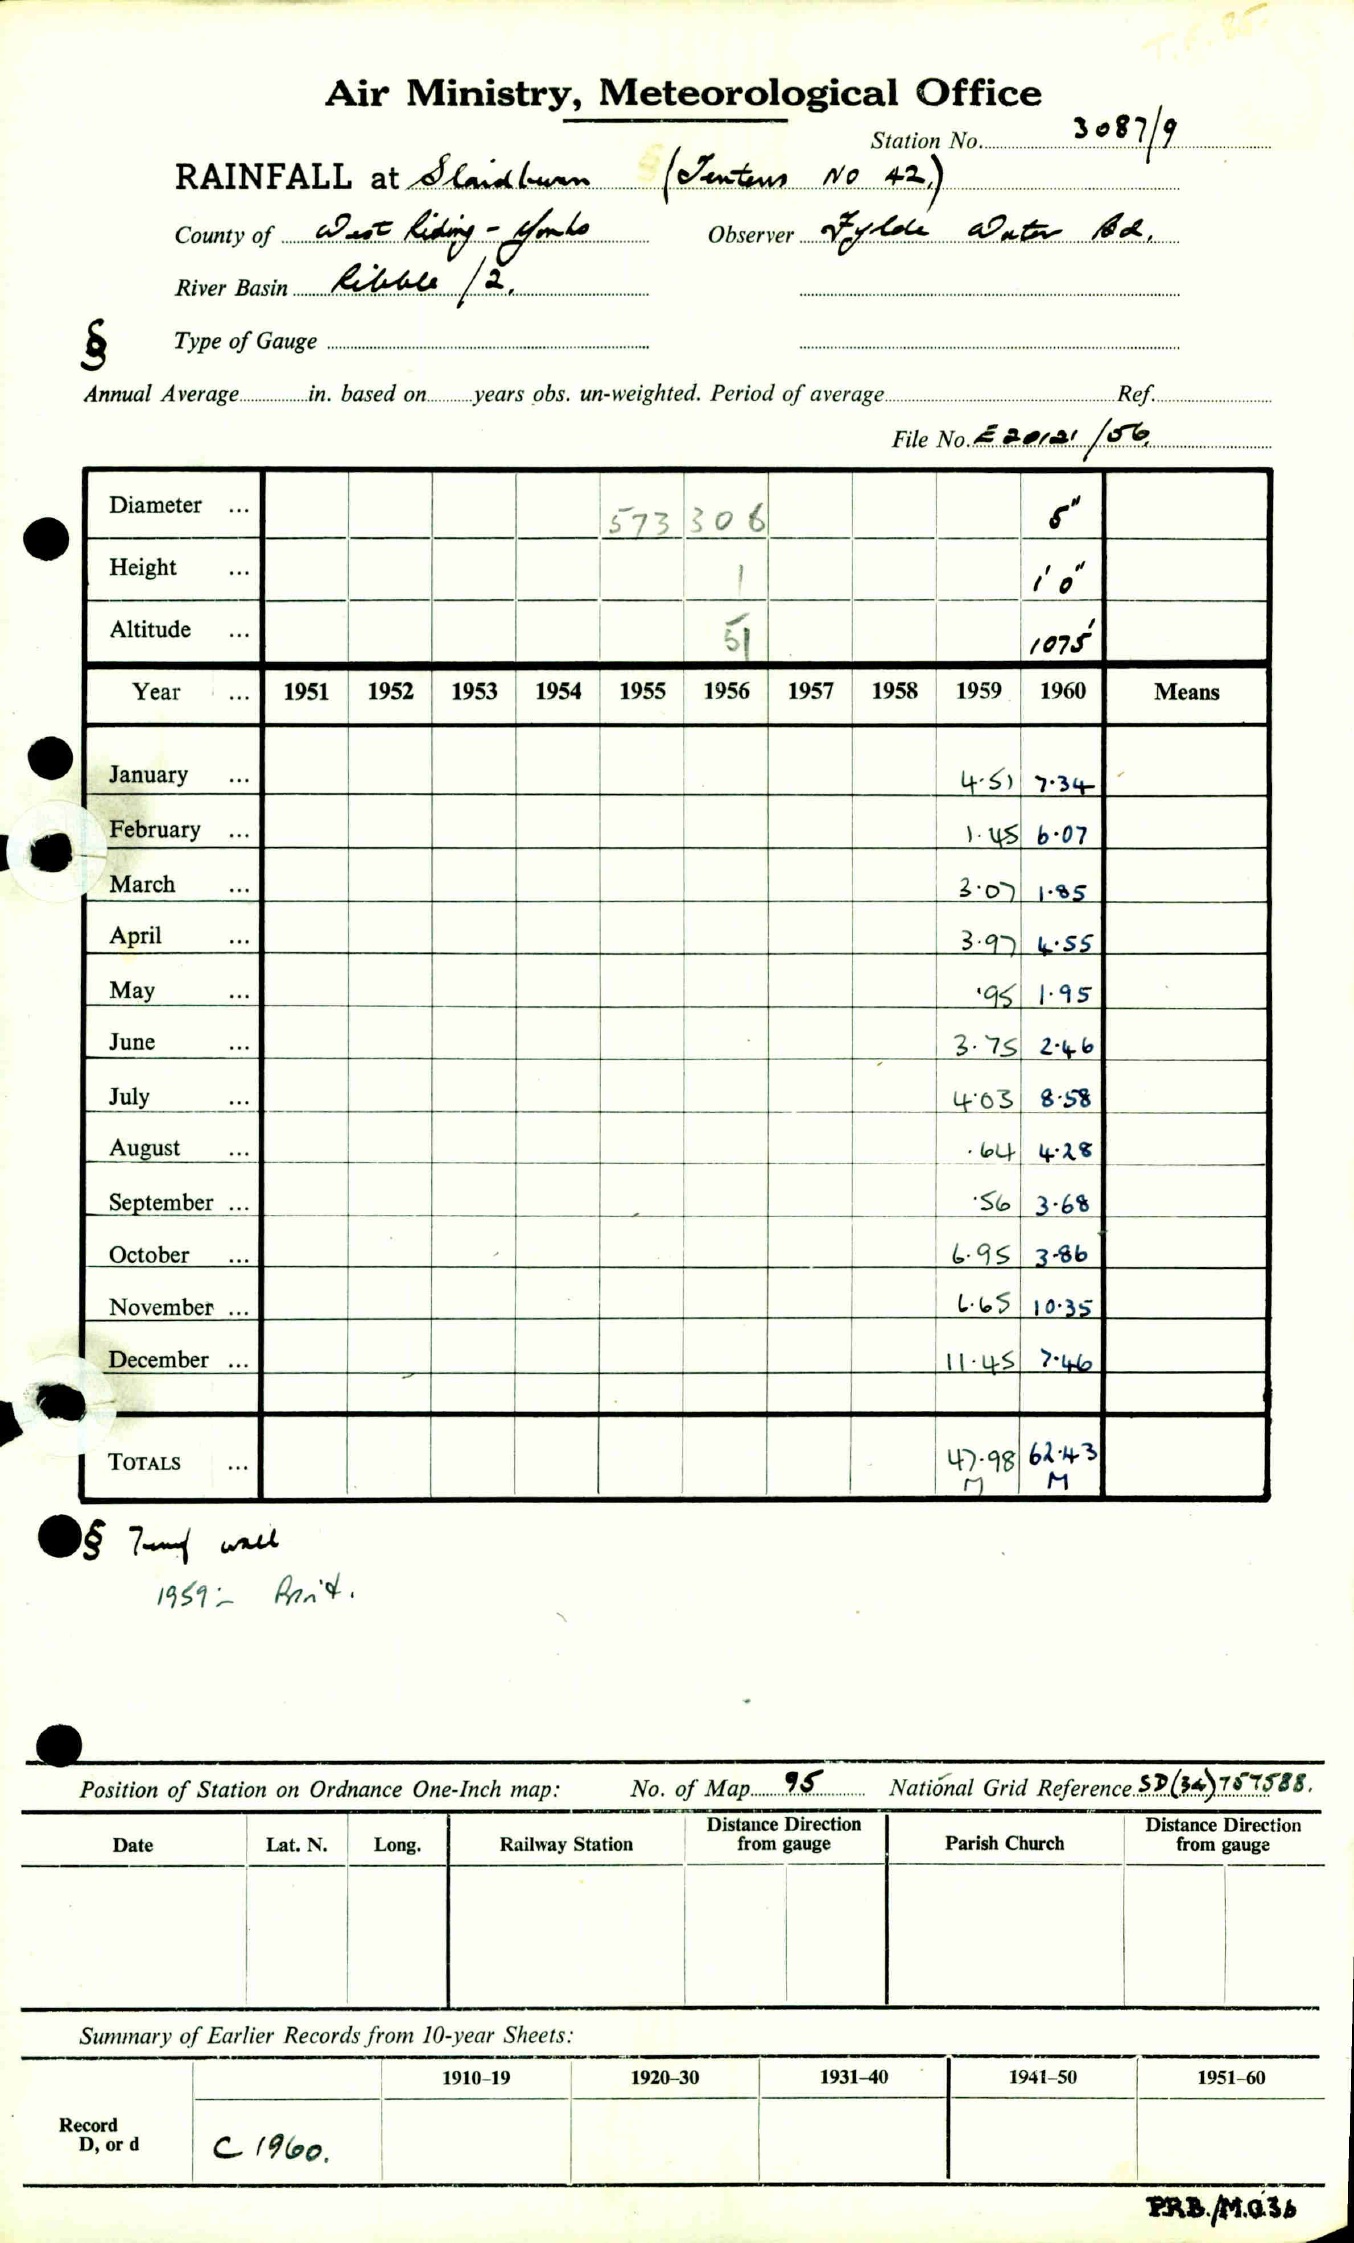 Air Ministry, Meteorological Office
Station No. 3087/9
RAINFALL at Slaidburn (Tenters No 42.)
County of West Riding - Yorks Observer Fylde Water Bd.
River Basin Ribble /2.
§ Type of Gauge
Annual Average in. based on years obs. un-weighted. Period of average Ref.
File No. E20121/56
Diameter ... 573 306 5"
Height ... 1 1' 0"
Altitude ... 51 1075'
Year ... 1951 1952 1953 1954 1955 1956 1957 1958 1959 1960 Means
January ... 4.51 7.34
February ... 1.45 6.07
March ... 3.07 1.85
April ... 3.97 4.55
May ... .95 1.95
June ... 3.75 2.46
July ... 4.03 8.58
August ... .64 4.28
September ... .56 3.68
October ... 6.95 3.86
November ... 6.65 10.35
December ... 11.45 7.46
TOTALS ... 47.98 62.43
M M
§ Turf wall
1959:-
Position of Station on Ordnance One-Inch map: No. of Map 95 National Grid Reference SD(34)757588.
Date Lat. N. Long. Railway Station Distance Direction from gauge Parish Church Distance Direction from gauge
Summary of Earlier Records from 10-year Sheets:
1910–19 1920–30 1931–40 1941–50 1951–60
Record
D, or d C 1960.
P.R.B./M.O.36